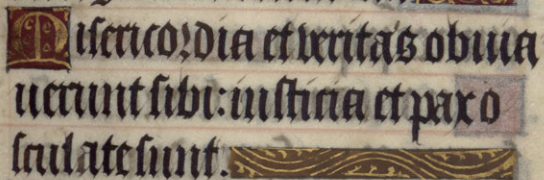 Misericordia et veritas obuia
uerunt sibi: iusticia et pax o
sculate sunt.